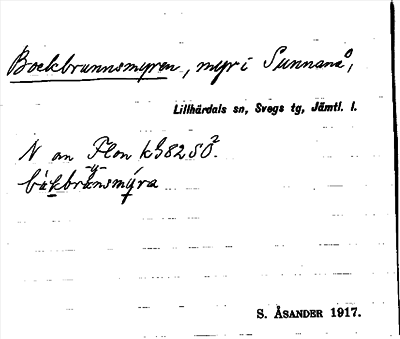 Bockbrunnsmyren, myr i Sunnanå,
Lillhärdals sn, Svegs tg, Jämtl. l.
N om Flon kB82SÖ².
S. ÅSANDER 1917.